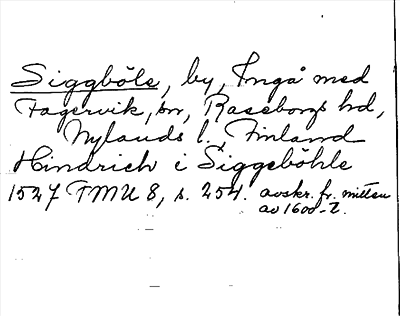 Siggböle, by, Ingå med
Fagervik, sn, Raseborgs hd,
Nylands l. Finland
Hindrich i Siggeböhle
1527 FMU 8, s. 254. avskr. fr. mitten
av 1600-t.